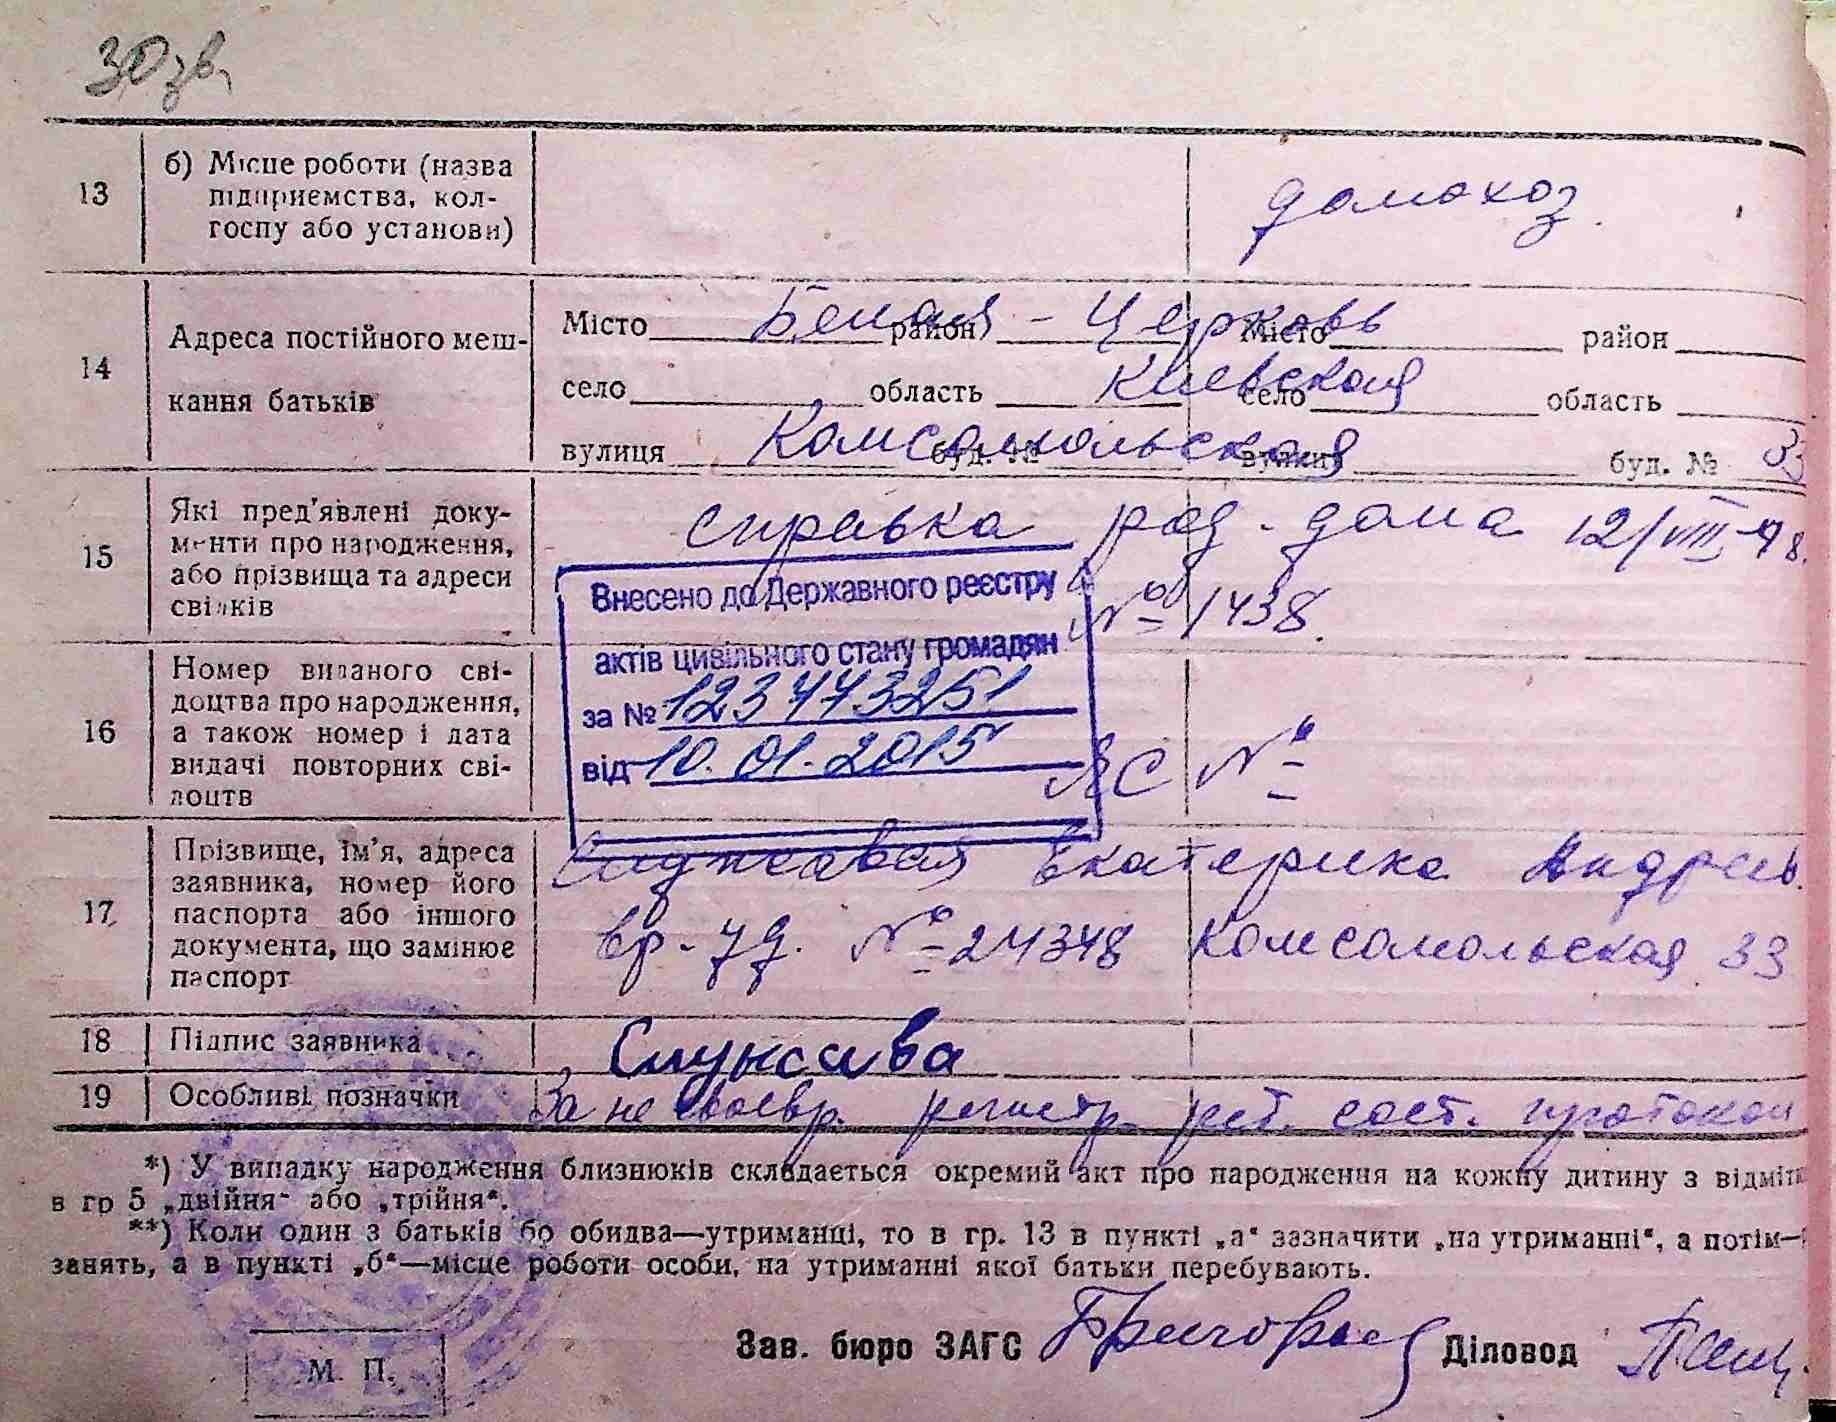 30 зв.
13 б) Місце роботи (назва
підприємства, кол-
госпу або установи)
домохоз.
14 Адреса постійного меш-
кання батьків
Місто Белая - Церковь район Місто район
село область Киевская село область
вулиця Комсомольская буд. № вулиця буд. № 33
15 Які пред'явлені доку-
менти про народження,
або прізвища та адреси
свідків
справка род-дома 12/VIII-48.
№ 1438.
Внесено до Державного реєстру
актів цивільного стану громадян
за № 123773251
від 10.01.2015
16 Номер виданого сві-
доцтва про народження,
а також номер і дата
видачі повторних сві-
доцтв
ЯС №
17 Прізвище, ім'я, адреса
заявника, номер його
паспорта або іншого
документа, що замінює
паспорт
Екатерина Андреев.
вр-79. № 24348 Комсомольская 33
18 Підпис заявника
19 Особливі позначки За не своевр. регистр. сост. протокол
*) У випадку народження близнюків складається окремий акт про народження на кожну дитину з відміт
в гр 5 „двійня“ або „трійня“.
**) Коли один з батьків бо обидва—утриманці, то в гр. 13 в пункті „а“ зазначити „на утриманні“, а потім—
занять, а в пункті „б“—місце роботи особи, на утриманні якої батьки перебувають.
Зав. бюро ЗАГС Діловод
М. П.